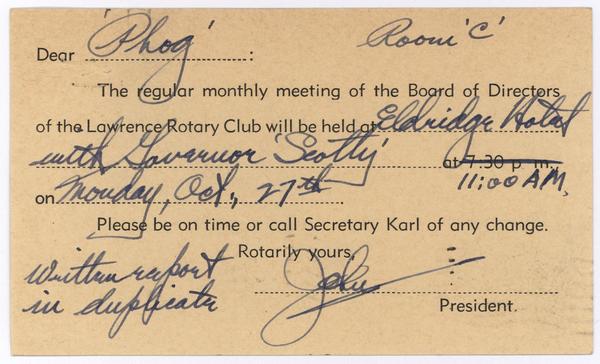 Dear 'Phog' : Room 'C'
The regular monthly meeting of the Board of Directors
of the Lawrence Rotary Club will be held at Eldridge Hotel
with Governor 'Scotty' at 7:30 p. m.
on Monday, Oct., 27th 11:00 AM,
Please be on time or call Secretary Karl of any change.
Rotarily yours,
Written report
in duplicate
John
President.